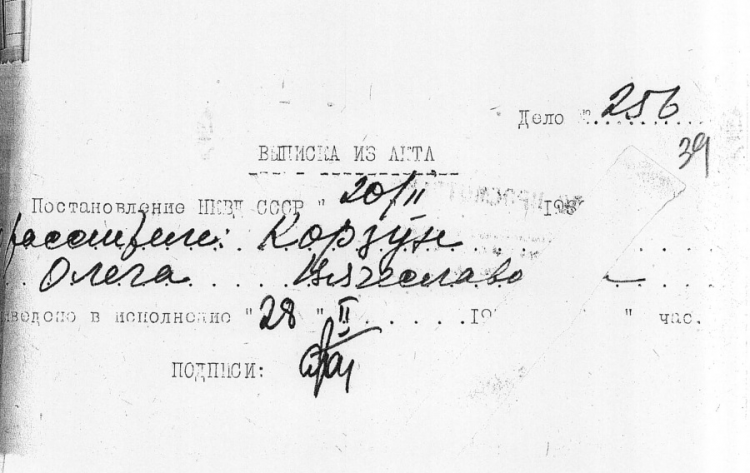 Дело №..256..........
39
ВЫПИСКА ИЗ АКТА
Постановление НКВД СССР " 20/II ......193
расстреле: Корзун
Олега Вячеславо
ведено в исполнение " 28 " II ......19 " час.
ПОДПИСИ: